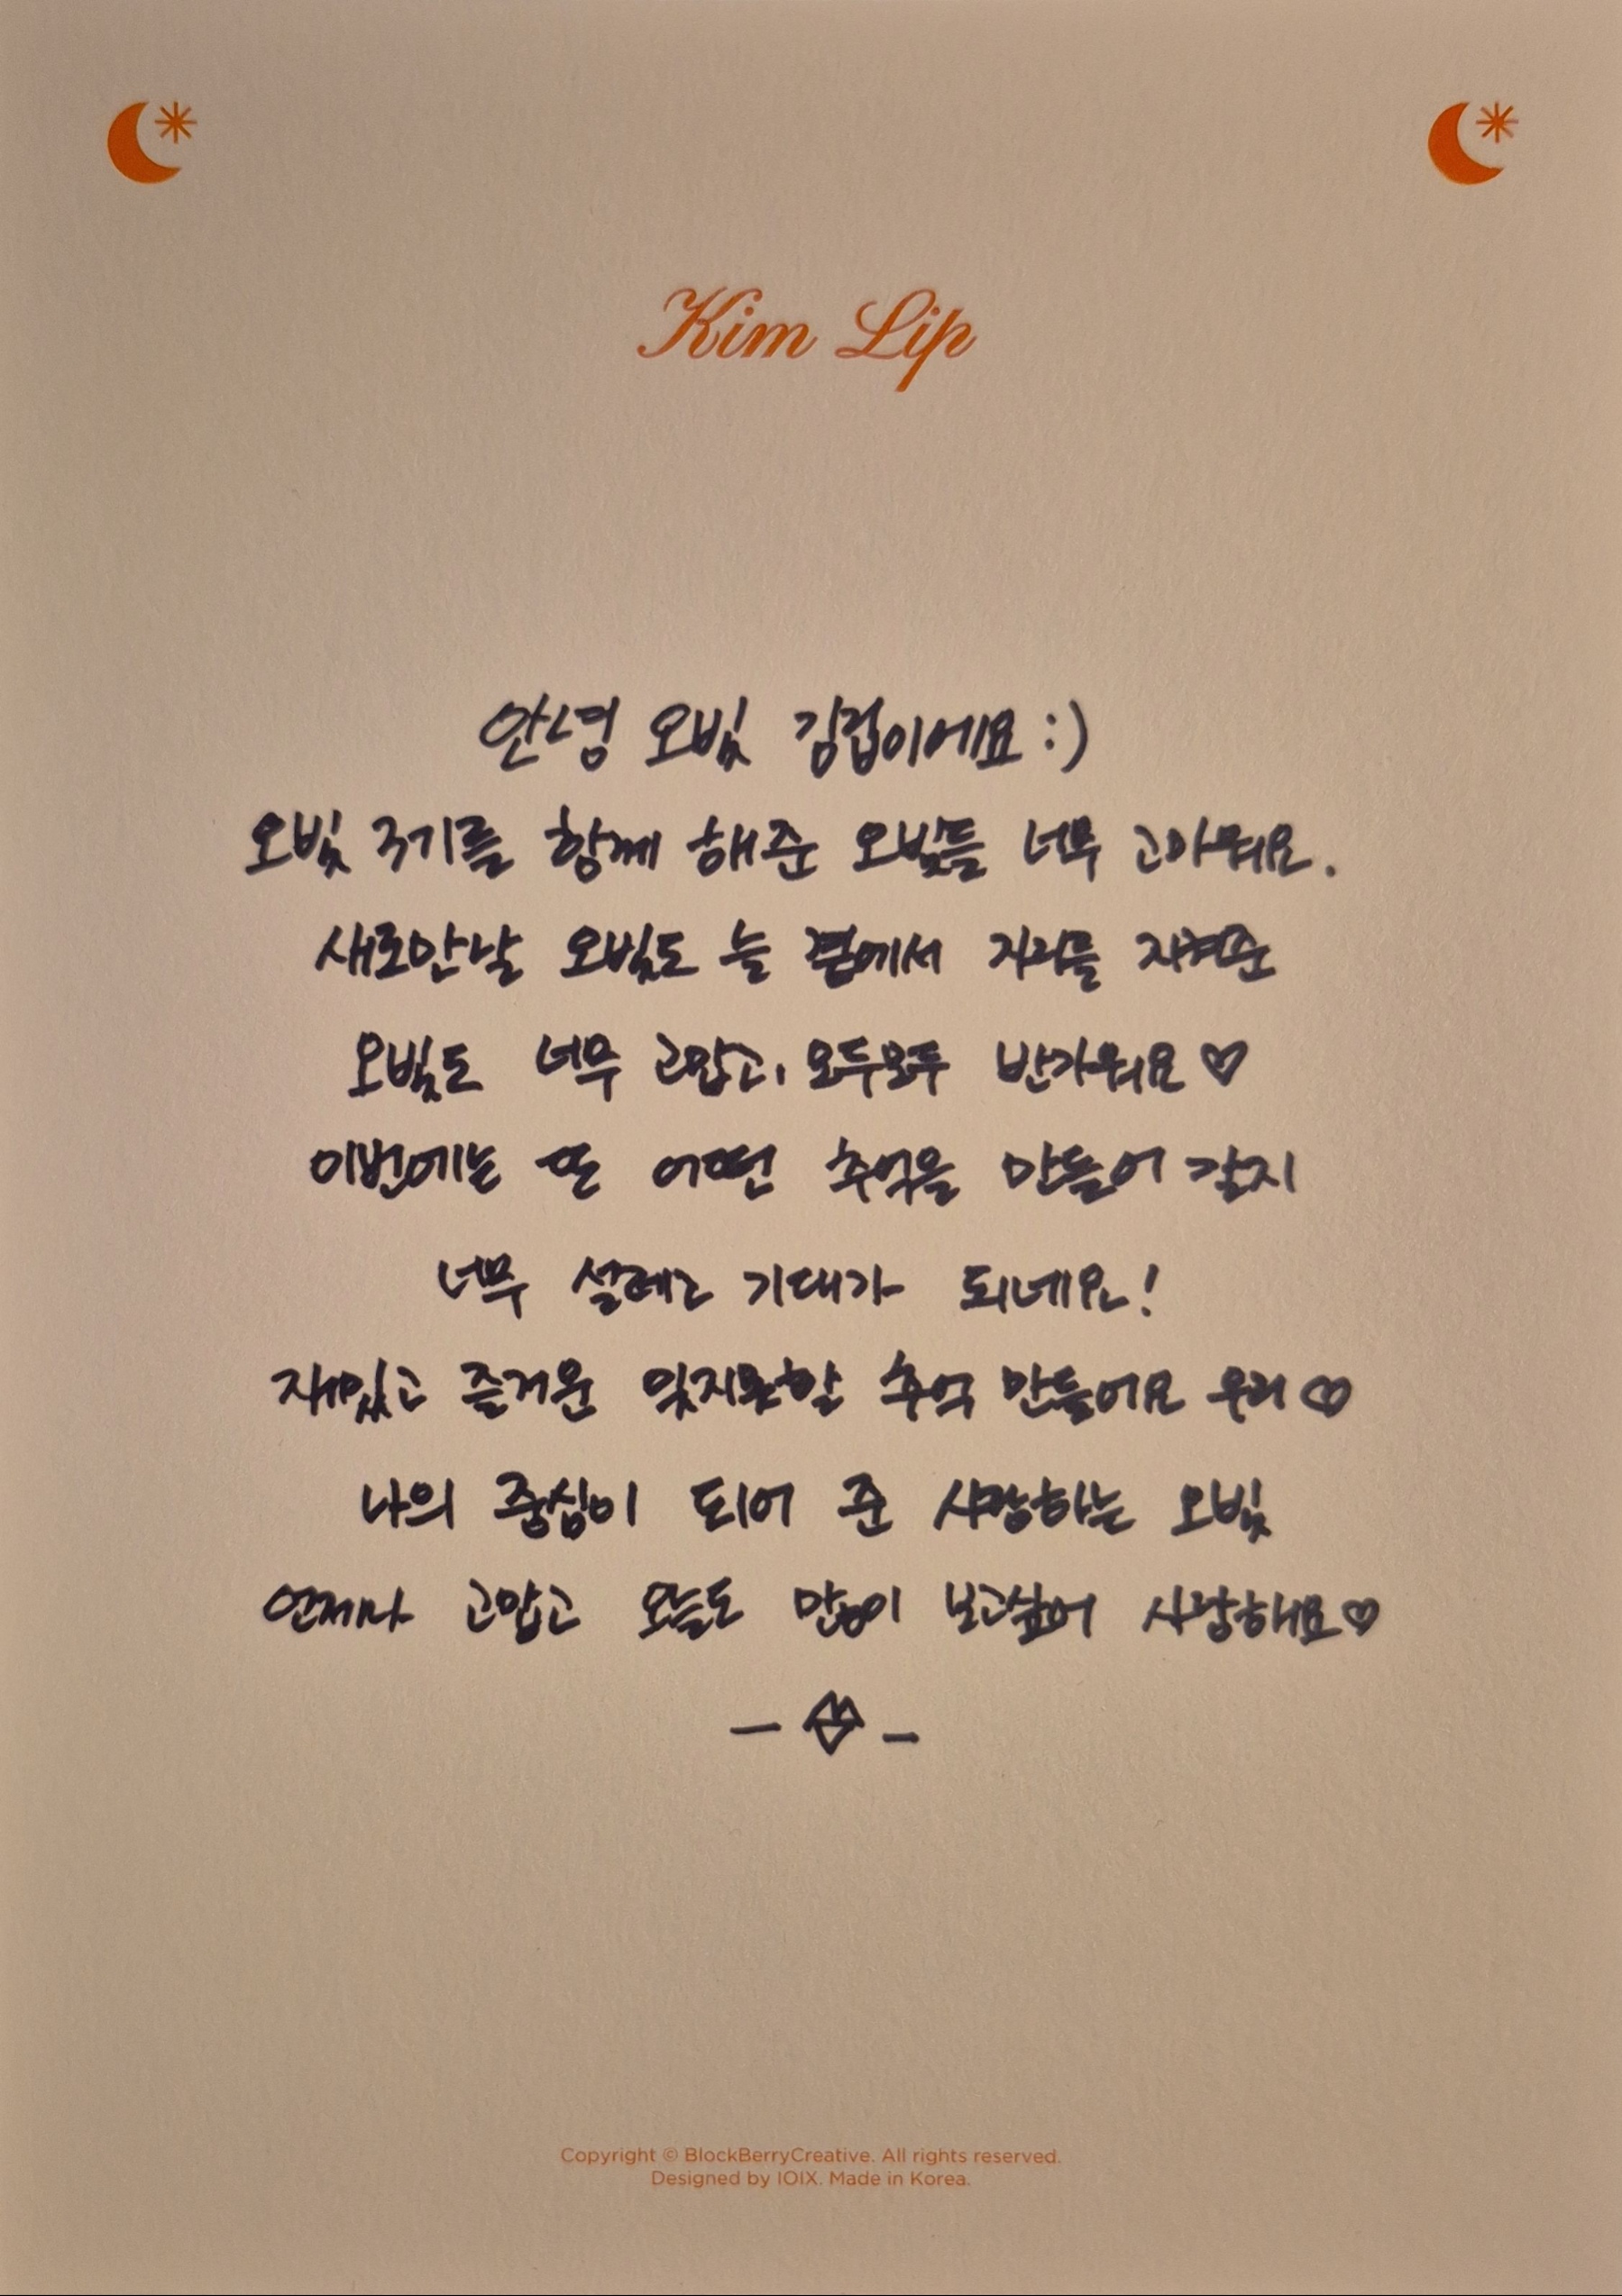 Kim Lip
안녕 오빛 김립이에요 :)
오빛 3기를 함께 해준 오빛들 너무 고마워요.
새로만날 오빛도 늘 곁에서 자리를 지켜준
오빛도 너무 고맙고, 모두모두 반가워요♡
이번에는 또 어떤 추억을 만들어 갈지
너무 설레고 기대가 되네요!
재밌고 즐거운 잊지못할 추억 만들어요 우리♡
나의 중심이 되어 준 사랑하는 오빛
언제나 고맙고 오늘도 많이 보고싶어 사랑해요♡
Copyright © BlockBerryCreative. All rights reserved.
Designed by IOIX. Made in Korea.